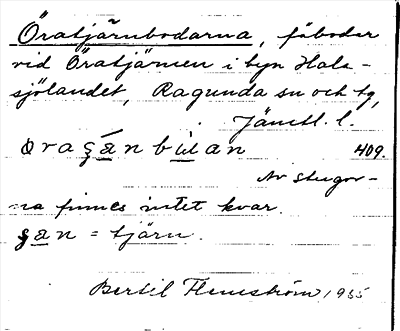 Öratjärnbodarna, fäbodar
vid Öratjärnen i byn Hals-
sjölandet, Ragunda sn och tg,
Jämtl. l.
øraʂánbùan 409.
Av stugor-
na finnes intet kvar.
ʂan = tjärn.
Bertil Flemström, 1935